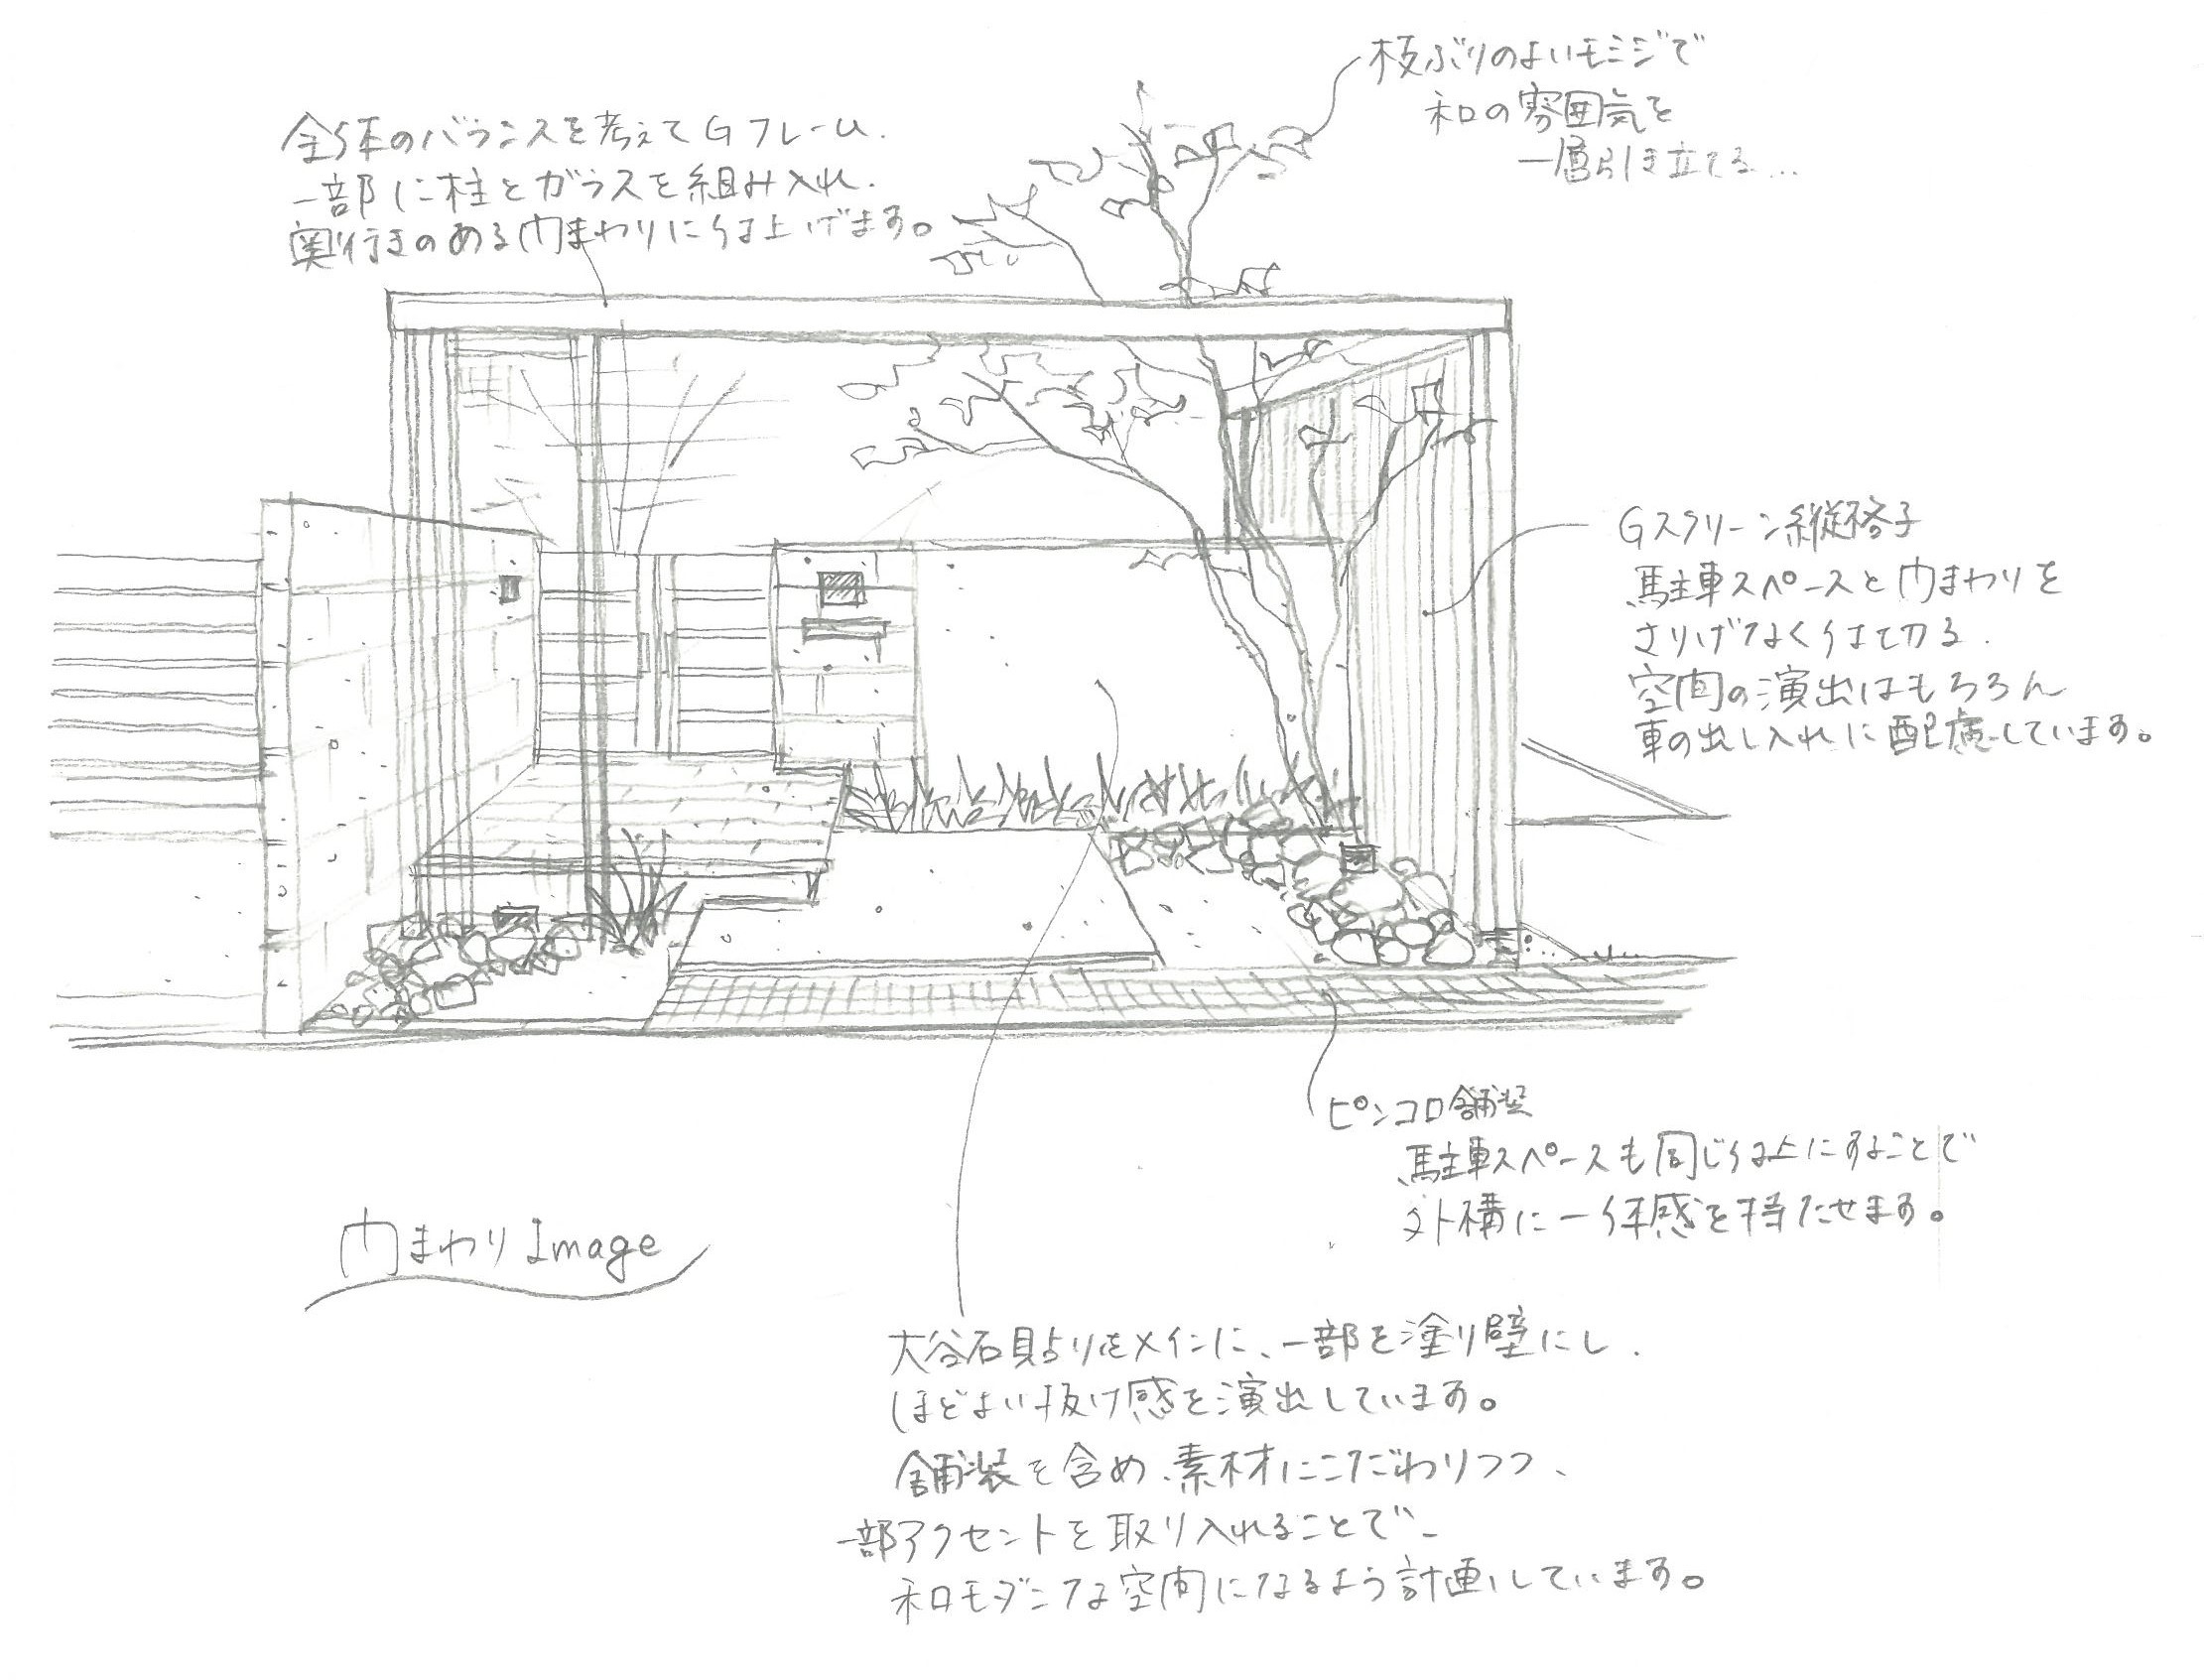 枝ぶりのよいモミジで
和の雰囲気を
一層引き立てる…
全体のバランスを考えてGフレーム.
一部に柱とガラスを組み入れ.
奥行きのある門まわりに仕上げます。
Gスクリーン縦格子
駐車スペースと門まわりを
さりげなく仕切る.
空間の演出はもちろん
車の出し入れに配慮しています。
ピンコロ舗装
駐車スペースも同じ仕上にすることで
外構に一体感を持たせます。
門まわりImage
大谷石貼りをメインに、一部を塗り壁にし.
ほどよい抜け感を演出しています。
舗装を含め、素材にこだわりつつ、
一部アクセントを取り入れることで、
和モダンな空間になるよう計画しています。